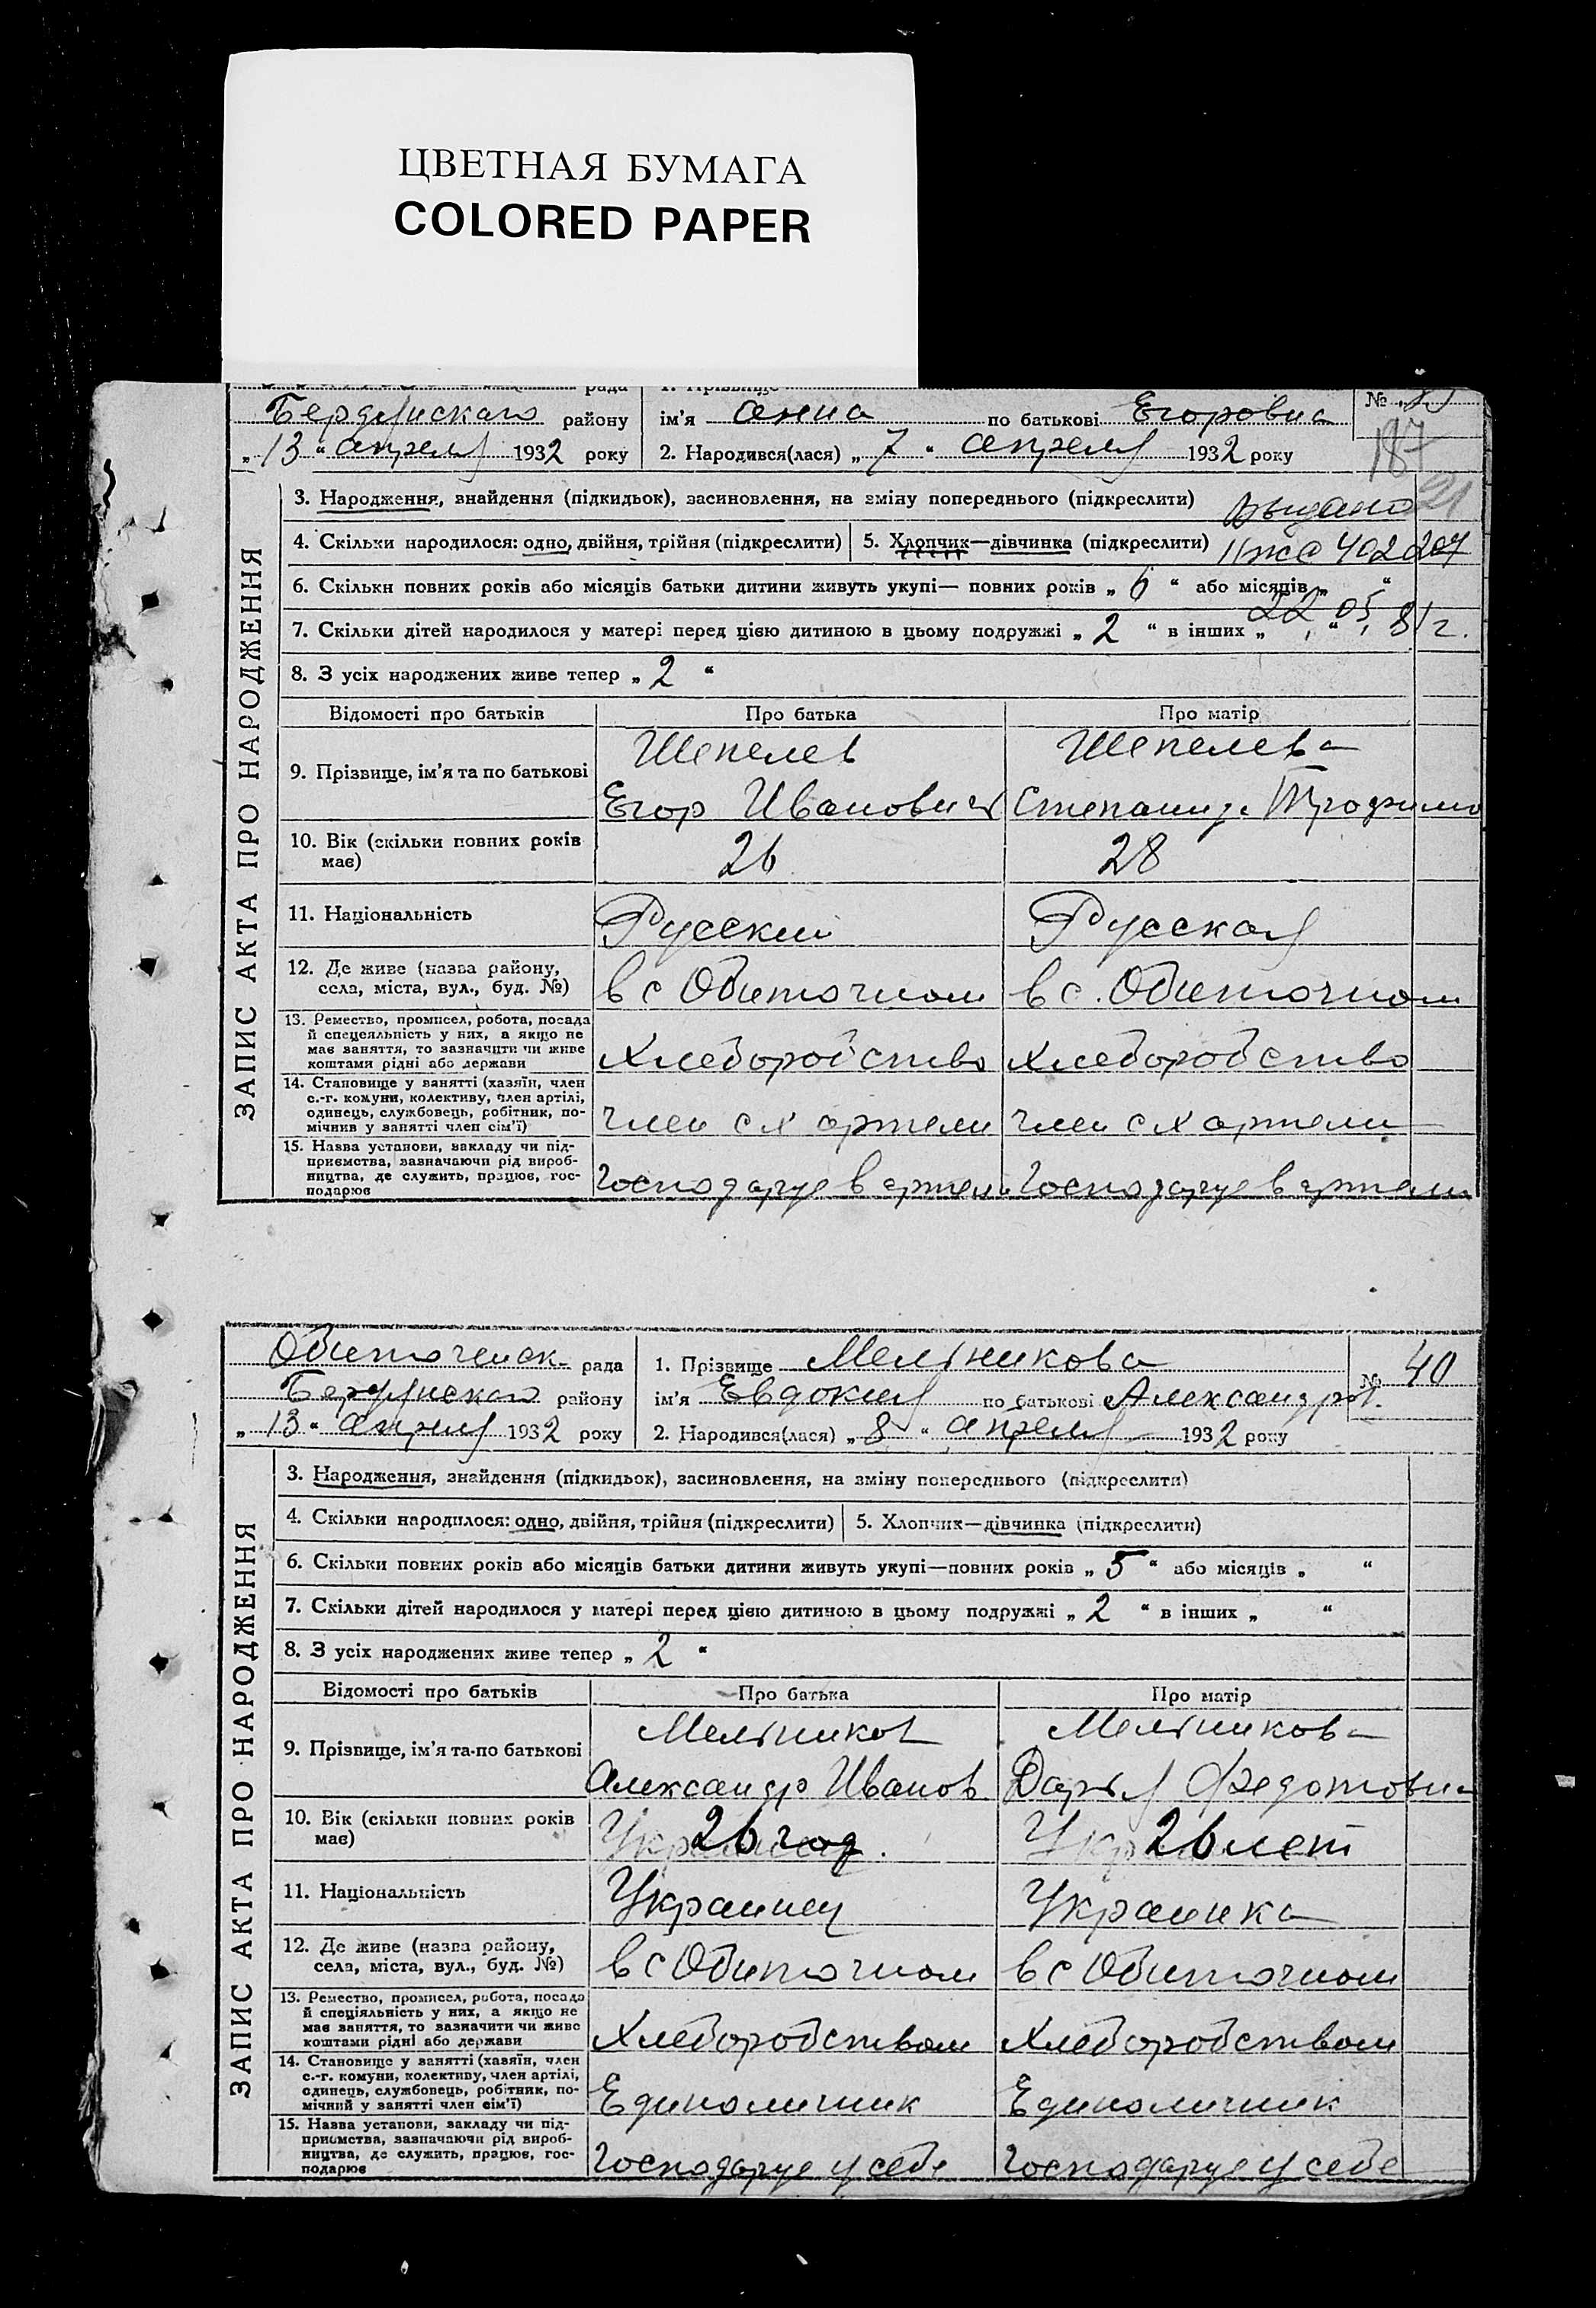 ЦВЕТНАЯ БУМАГА
COLORED PAPER
Бердянскаго району ім’я Анна по батькові Егоровна №
„13“ апреля 1932 року 2. Народився(лася) „7“ апреля 1932 року
187
21
ЗАПИС АКТА ПРО НАРОДЖЕННЯ
3. Народження, знайдення (підкидьок), засиновлення, на зміну попереднього (підкреслити) Выдано
4. Скільки народилося: одно, двійня, трійня (підкреслити) 5. Хлопчик—дівчинка (підкреслити) ІІ жс 402207
6. Скільки повних років або місяців батьки дитини живуть укупі— повних років „6“ або місяців „ “
22, 05, 81 г.
7. Скільки дітей народилося у матері перед цією дитиною в цьому подружжі „2“ в інших „ “
8. З усіх народжених живе тепер „2“
Відомості про батьків Про батька Про матір
9. Прізвище, ім’я та по батькові Шепелев Шепелева
Егор Иванович Степанида Трофимо
10. Вік (скільки повних років
має) 26 28
11. Національність Русский Русская
12. Де живе (назва району,
села, міста, вул., буд. №) в с Обиточном в с. Обиточном
13. Ремество, промисел, робота, посада
й спецеяльність у них, а якщо не
має заняття, то зазначити чи живе
коштами рідні або держави Хлеборобство Хлеборобство
14. Становище у занятті (хазяїн, член
с.-г. комуни, колективу, член артілі,
одинець, службовець, робітник, по-
мічник у занятті член сім’ї) член с х артели член с х артели
15. Назва установи, закладу чи під-
приємства, зазначаючи рід вироб-
ництва, де служить, працює, гос-
подарює Господарує в артели Господарує в артели
Обиточенск рада 1. Прізвище Мельникова № 40
Бердянскаго району ім’я Евдокия по батькові Александров.
„13“ апреля 1932 року 2. Народився(лася) „8“ апреля 1932 року
ЗАПИС АКТА ПРО НАРОДЖЕННЯ
3. Народження, знайдення (підкидьок), засиновлення, на зміну попереднього (підкреслити)
4. Скільки народилося: одно, двійня, трійня (підкреслити) 5. Хлопчик—дівчинка (підкреслити)
6. Скільки повних років або місяців батьки дитини живуть укупі—повних років „5“ або місяців „ “
7. Скільки дітей народилося у матері перед цією дитиною в цьому подружжі „2“ в інших „ “
8. З усіх народжених живе тепер „2“
Відомості про батьків Про батька Про матір
9. Прізвище, ім’я та-по батькові Мельников Мельникова
Александр Иванов Дарья Федотовна
10. Вік (скільки повних років
має) 26 год 26 лет
11. Національність Украинец Украинка
12. Де живе (назва району,
села, міста, вул., буд. №) в с Обиточном в с Обиточном
13. Ремество, промисел, робота, посада
й спеціяльність у них, а якщо не
має заняття, то зазначити чи живе
коштами рідні або держави Хлеборобством Хлеборобством
14. Становище у занятті (хазяїн, член
с.-г. комуни, колективу, член артілі,
одинець, службовець, робітник, по-
мічний у занятті член сім’ї) Единоличник Единоличник
15. Назва установи, закладу чи під-
приємства, зазначаючи рід вироб-
ництва, де служить, працює, гос-
подарює Господарує у себе Господарує у себе